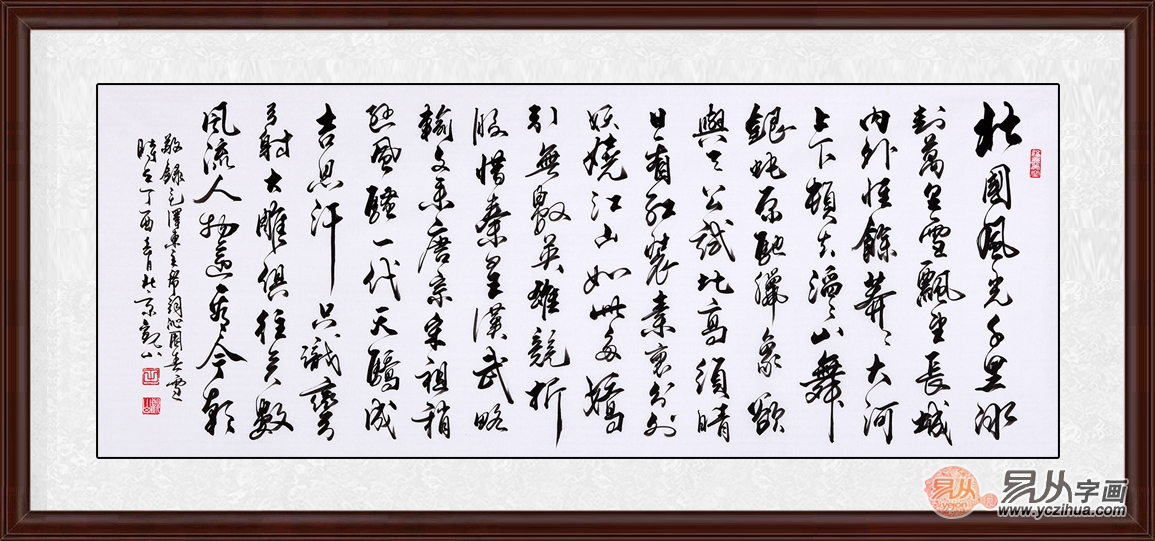 北國風光千里冰
封萬里雪飄望長城
内外惟餘莽莽大河
上下頓失滔滔山舞
銀蛇原馳臘象欲
與天公試比高須晴
日看紅裝素裹分外
妖嬈江山如此多嬌
引無數英雄競折
腰惜秦皇漢武略
輸文采唐宗宋祖稍
遜風騷一代天驕成
吉思汗只識彎
弓射大雕俱往矣數
風流人物還看今朝
敬錄毛澤東主席詞沁園春雪
時在丁酉春月於京觀山
易从
易从字画
www.yczihua.com